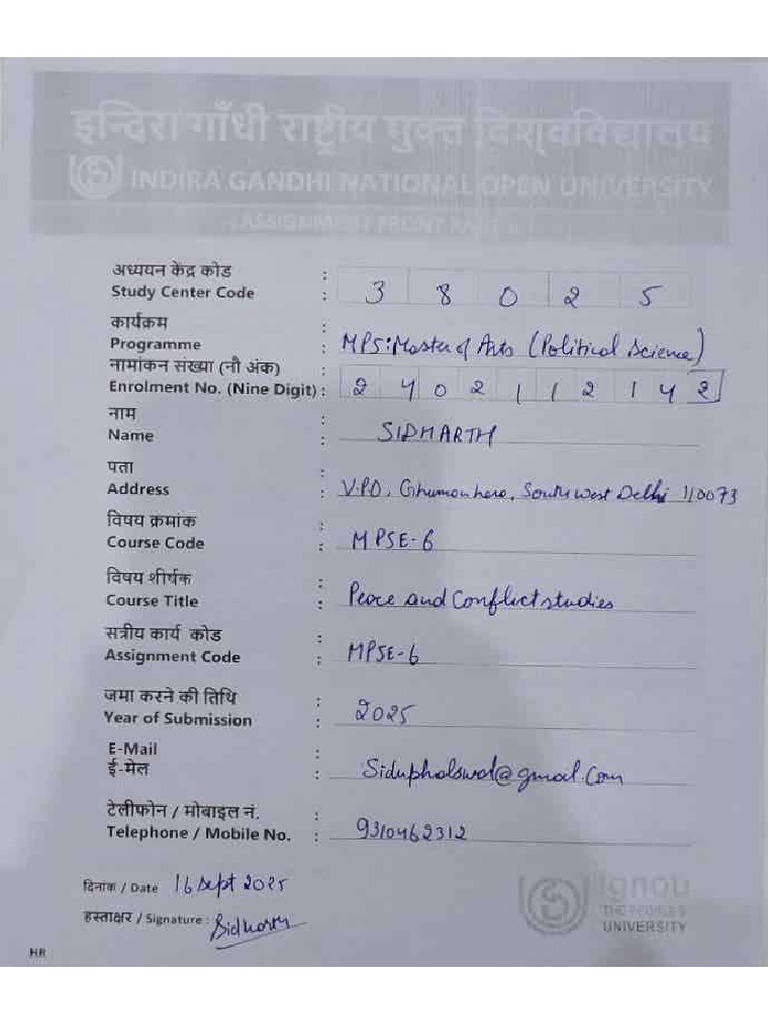 इन्दिरा गाँधी राष्ट्रीय मुक्त विश्वविद्यालय
INDIRA GANDHI NATIONAL OPEN UNIVERSITY
ASSIGNMENT FRONT PAGE
अध्ययन केंद्र कोड :
Study Center Code : 3 8 0 2 5
कार्यक्रम :
Programme : MPS: Master of Arts (Political Science)
नामांकन संख्या (नौ अंक) :
Enrolment No. (Nine Digit) : 2 4 0 2 1 1 2 1 4 2
नाम :
Name : SIDHARTH
पता :
Address : V.P.O, Ghumanhera, South West Delhi 110073
विषय क्रमांक :
Course Code : MPSE-6
विषय शीर्षक :
Course Title : Peace and Conflict studies
सत्रीय कार्य कोड :
Assignment Code : MPSE-6
जमा करने की तिथि :
Year of Submission : 2025
E-Mail :
ई-मेल : Siduphalswal@gmail.com
टेलीफोन / मोबाइल नं. :
Telephone / Mobile No. : 9310462312
दिनांक / Date 16 Sept 2025
हस्ताक्षर / Signature : Sidharth
ignou
THE PEOPLE'S
UNIVERSITY
HR